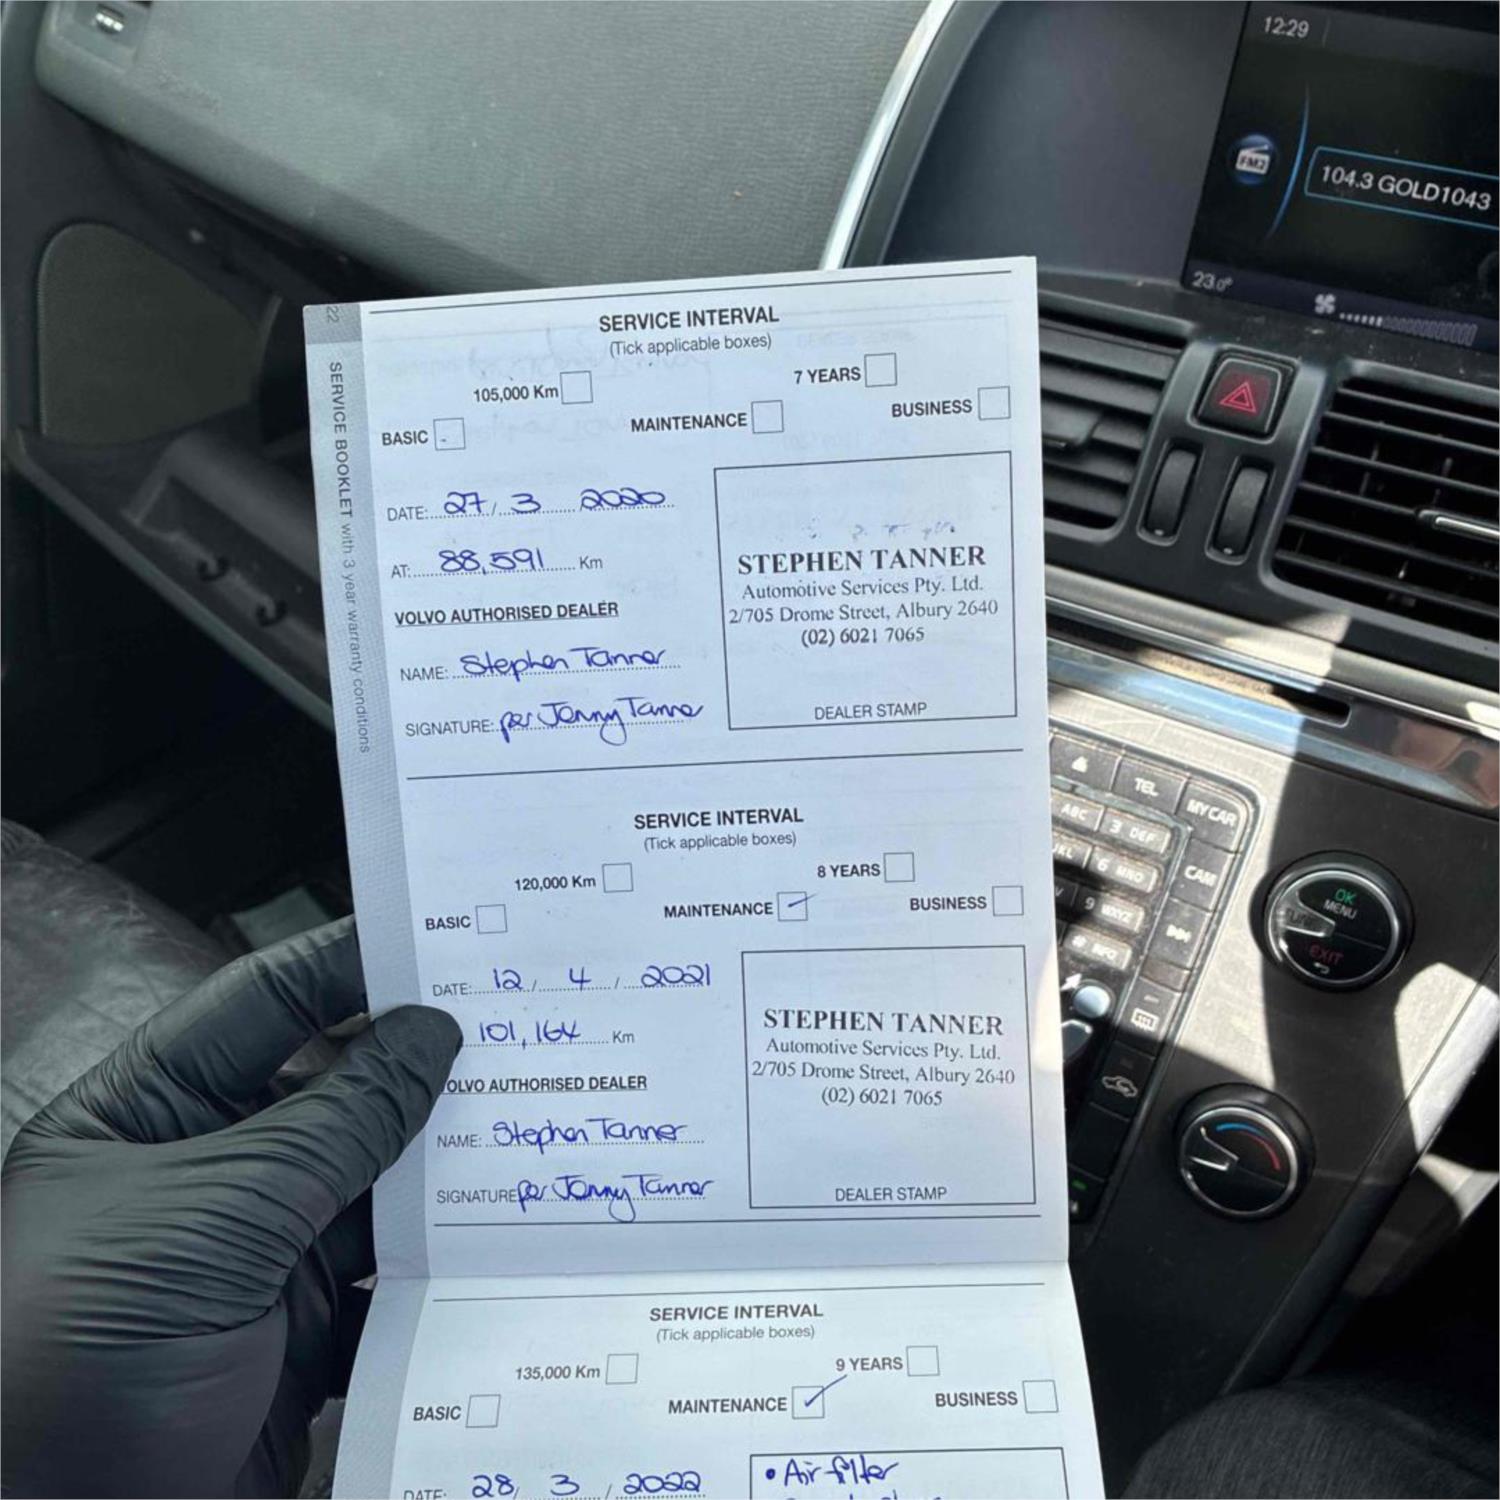 12:29
FM2
104.3 GOLD1043
23.0°
22
SERVICE BOOKLET with 3 year warranty conditions
SERVICE INTERVAL
(Tick applicable boxes)
105,000 Km
7 YEARS
BASIC
MAINTENANCE
BUSINESS
DATE: 27/ 3 2020
AT: 88,591 Km
VOLVO AUTHORISED DEALER
NAME: Stephen Tanner
SIGNATURE: per Jenny Tanner
STEPHEN TANNER
Automotive Services Pty. Ltd.
2/705 Drome Street, Albury 2640
(02) 6021 7065
DEALER STAMP
SERVICE INTERVAL
(Tick applicable boxes)
120,000 Km
8 YEARS
BASIC
MAINTENANCE
BUSINESS
DATE: 12/ 4 / 2021
101,164 Km
OLVO AUTHORISED DEALER
NAME: Stephen Tanner
SIGNATURE per Jenny Tanner
STEPHEN TANNER
Automotive Services Pty. Ltd.
2/705 Drome Street, Albury 2640
(02) 6021 7065
DEALER STAMP
SERVICE INTERVAL
(Tick applicable boxes)
135,000 Km
9 YEARS
BASIC
MAINTENANCE
BUSINESS
DATE: 28/ 3 / 2022
• Air filter
TEL
MY CAR
ABC
3 DEF
6 MNO
CAM
9 WXYZ
OK
MENU
TUNE
EXIT